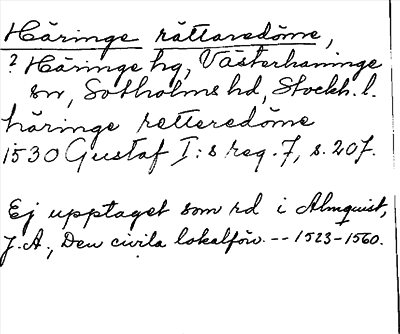 Häringe rättaredöme,
? Häringe hg, Västerhaninge
sn, Sotholms hd, Stockh. l.
häringe retteredöme
1530 Gustaf I:s reg. 7, s. 207.
Ej upptaget som rd i Almquist,
J.A., Den civila lokalförv. -- 1523-1560.